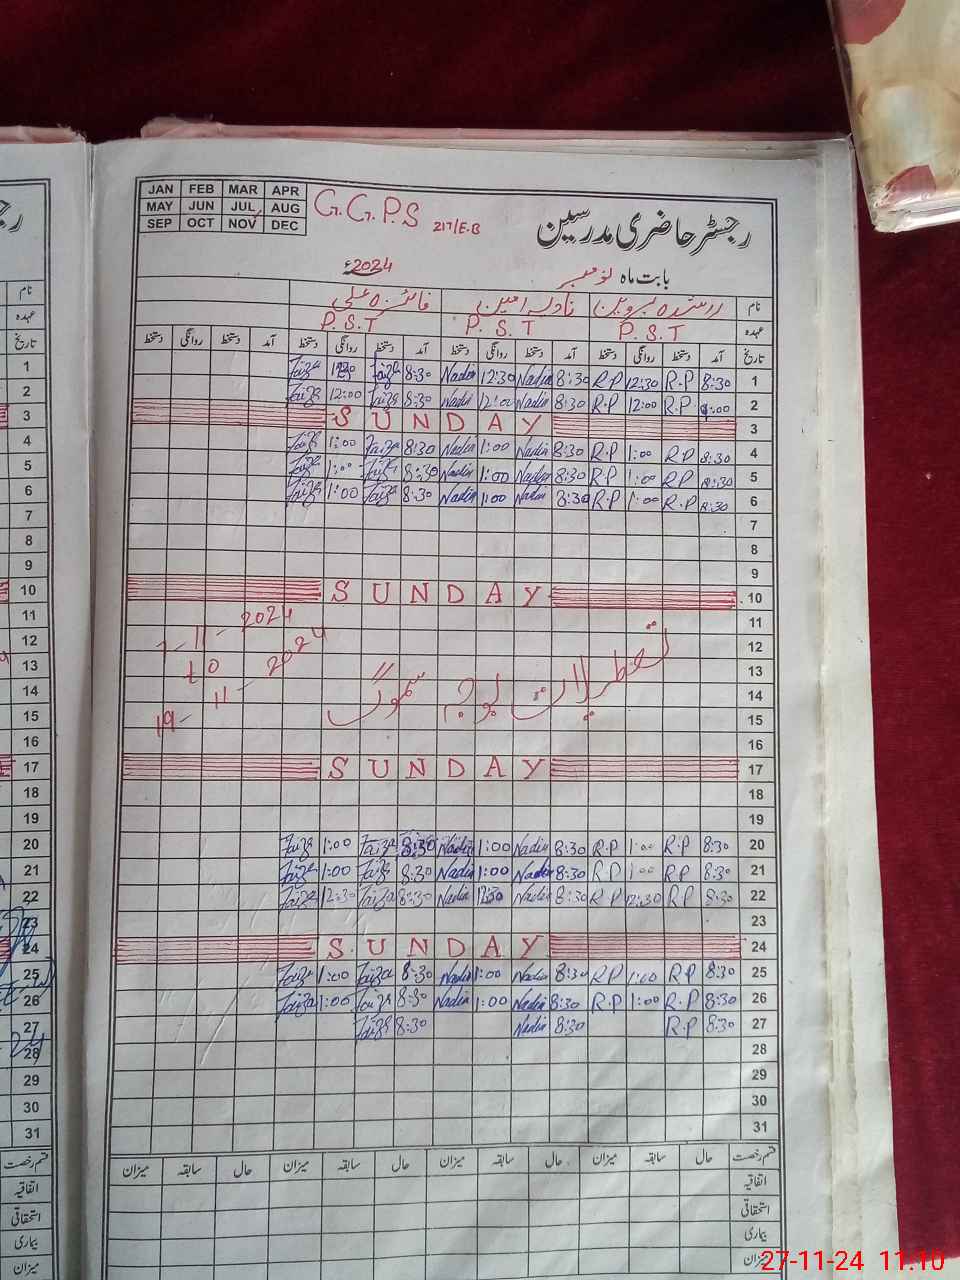 JAN FEB MAR APR
MAY JUN JUL AUG
SEP OCT NOV DEC
G.G.P.S 217/E.B
رجسٹر حاضری مدرسین
بابت ماہ نومبر 2024ء
نام پروین نادیہ امین فائزہ علی
عہدہ P.S.T P.S.T P.S.T
تاریخ آمد دستخط روانگی دستخط آمد دستخط روانگی دستخط آمد دستخط روانگی دستخط آمد دستخط روانگی دستخط
1 Faiza Faiza 8:30 Nadia 12:30 Nadia 8:30 R.P 12:30 R.P 8:30 1
2 Faiza 12:00 Faiza 8:30 Nadia 12:00 Nadia 8:30 R.P 12:00 R.P 2
3 SUNDAY 3
4 Faiza 1:00 Faiza 8:30 Nadia 1:00 Nadia 8:30 R.P 1:00 R.P 8:30 4
5 Faiza 1:00 Faiza 8:30 Nadia 1:00 Nadia 8:30 R.P 1:00 R.P 8:30 5
6 Faiza 1:00 Faiza 8:30 Nadia 1:00 Nadia 8:30 R.P 1:00 R.P 8:30 6
7 7
8 8
9 9
10 SUNDAY 10
11 11
12 12
13 13
14 14
15 15
16 16
7-11-2024
to
19-11-2024
تعطیلات بوجہ سموگ
17 SUNDAY 17
18 18
19 19
20 Faiza 1:00 Faiza 8:30 Nadia 1:00 Nadia 8:30 R.P 1:00 R.P 8:30 20
21 Faiza 1:00 Faiza 8:30 Nadia 1:00 Nadia 8:30 R.P 1:00 R.P 8:30 21
22 Faiza 12:30 Faiza 8:30 Nadia 12:30 Nadia 8:30 R.P 12:30 R.P 8:30 22
23 23
24 SUNDAY 24
25 Faiza 1:00 Faiza 8:30 Nadia 1:00 Nadia 8:30 R.P 1:00 R.P 8:30 25
26 Faiza 1:00 Faiza 8:30 Nadia 1:00 Nadia 8:30 R.P 1:00 R.P 8:30 26
27 Faiza 8:30 Nadia 8:30 R.P 8:30 27
28 28
29 29
30 30
31 31
قسم رخصت حال سابقہ میزان حال سابقہ میزان حال سابقہ میزان حال سابقہ میزان
اتفاقیہ
استحقاقی
بیماری
میزان
27-11-24 11:10